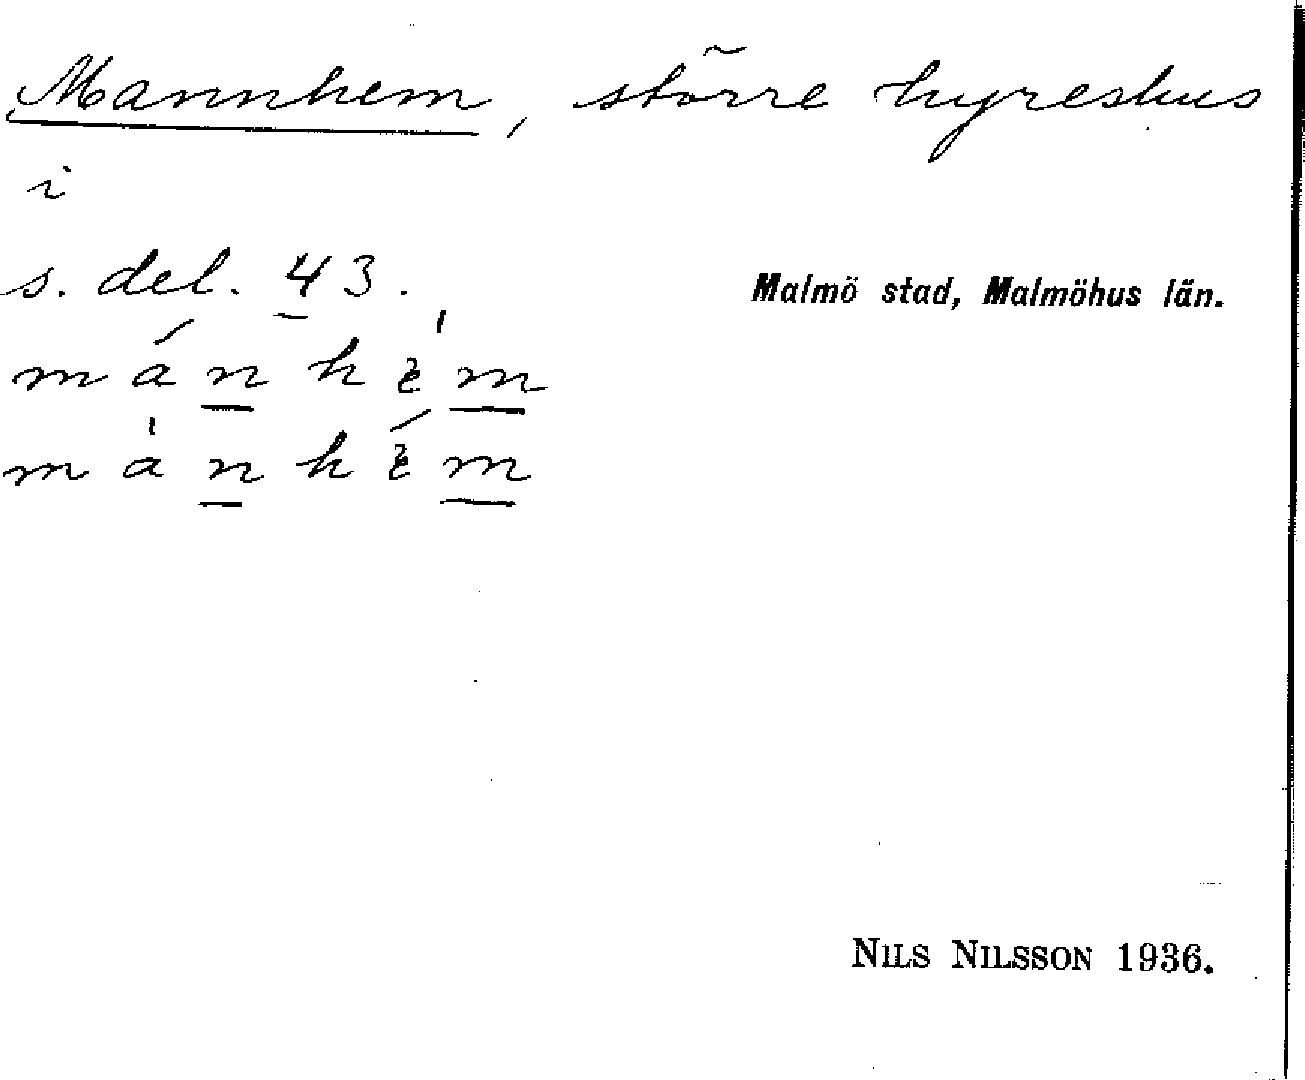 Mannhem, större hyreshus
i
s. del. 43.
Malmö stad, Malmöhus län.
NILS NILSSON 1936.